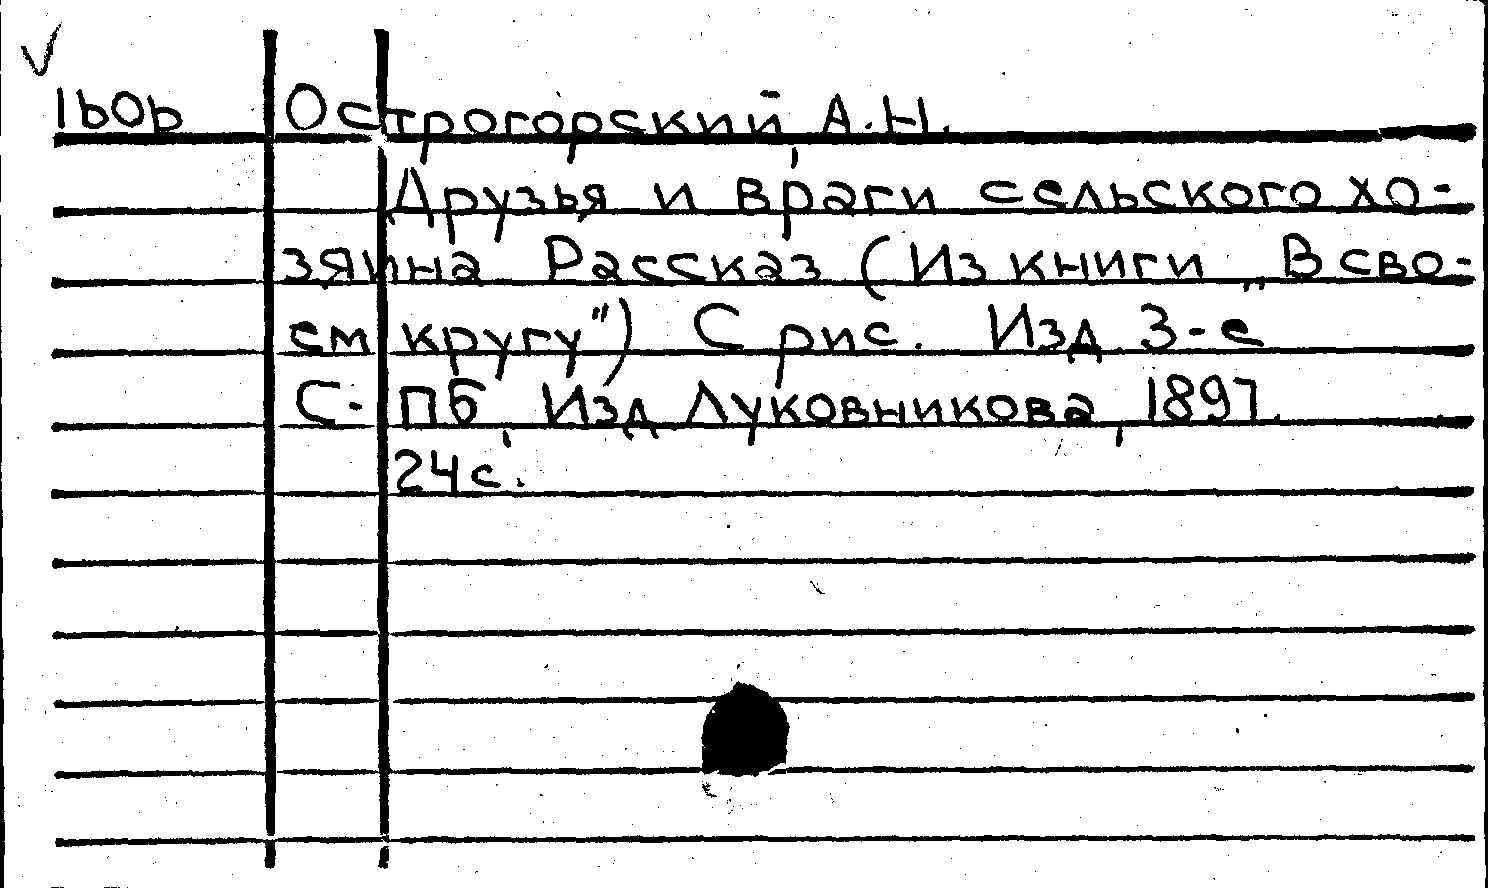 Островский А.Н.
Друзья и враги сельского хо-
зяина Рассказ (Из книги „В сво-
ем кругу") С рис. Изд 3-е
С-Пб, Изд Луковникова, 1897.
24с.